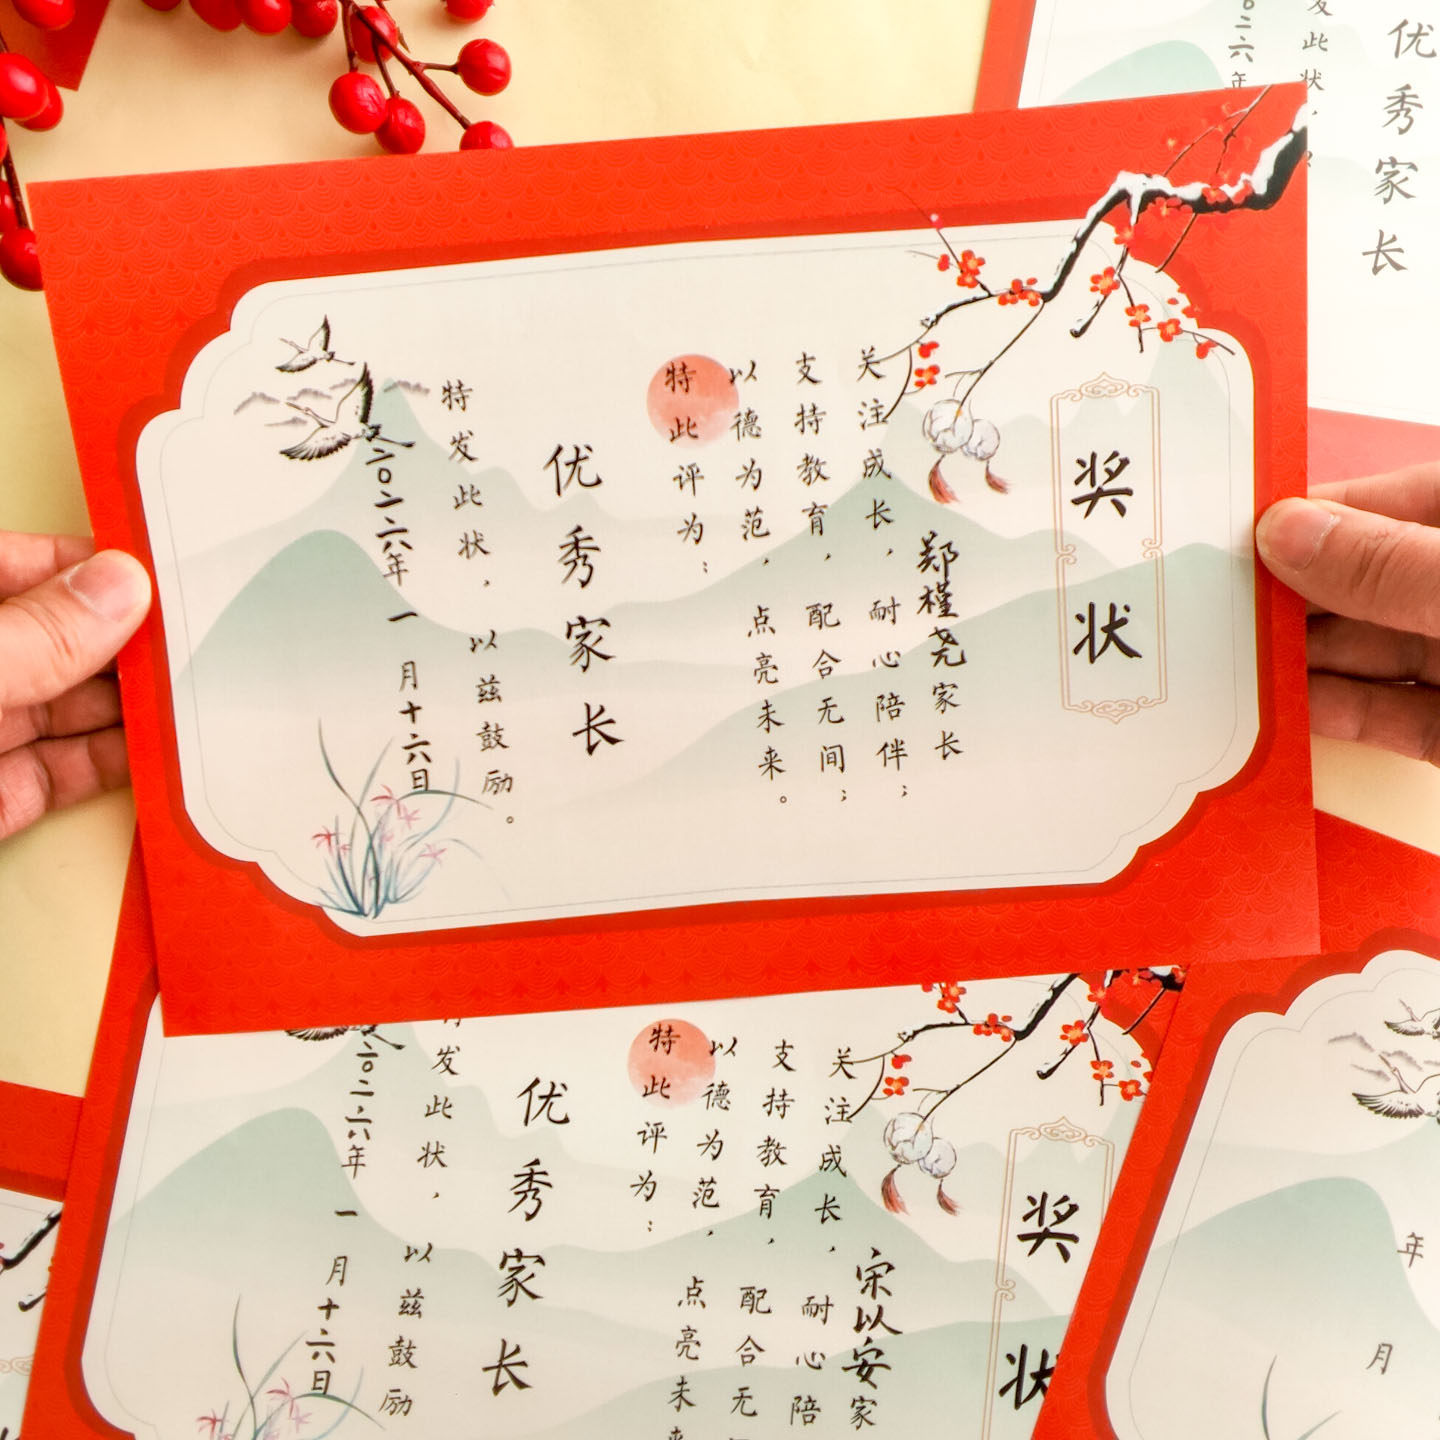 奖状
郑槿尧家长
关注成长，耐心陪伴；
支持教育，配合无间；
以德为范，点亮未来。
特此评为：
优秀家长
特发此状，以兹鼓励。
二〇二六年一月十六日
优秀家长
发此状，
〇二六年
奖状
宋以安家
关注成长，耐心陪
支持教育，配合无
以德为范，点亮未来
特此评为：
优秀家长
发此状，以兹鼓励
二〇二六年一月十六日
年月